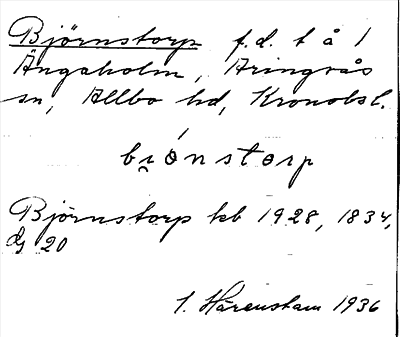 Björnstorp f.d. t å 1
Ängaholm, Aringsås
sn, Allbo hd, Kronobs l.
bi̯ónstorp
Björnstorp kb 1928, 1834,
20
1. Härenstam 1936